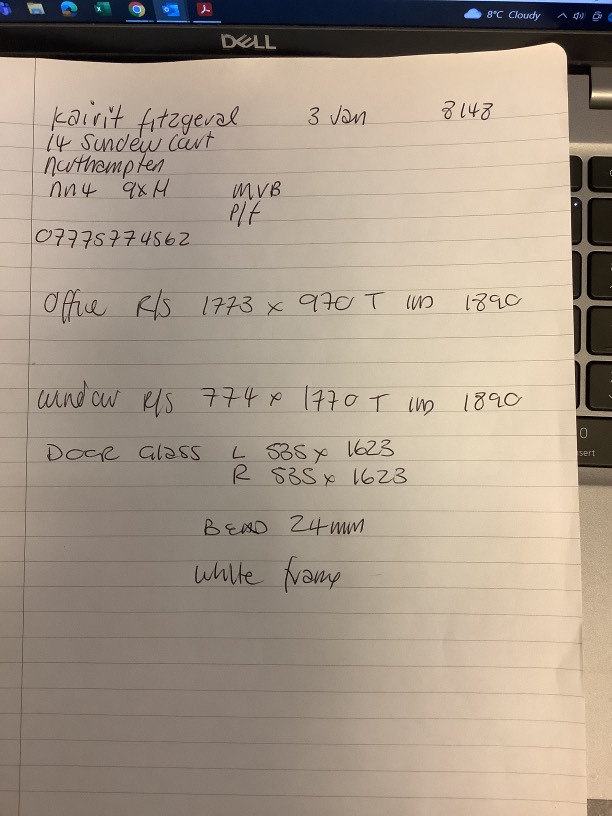 8°C Cloudy
DELL
Kairit fitzgeral 3 Jan 8148
14 Sundew Court
Northampton
nn4 9xH MVB
P/f
07775774562
Office R/S 1773 x 970 T 1890
window R/S 774 x 1770 T 1890
DOOR Glass L 535 x 1623
R 535 x 1623
BEAD 24mm
White frame